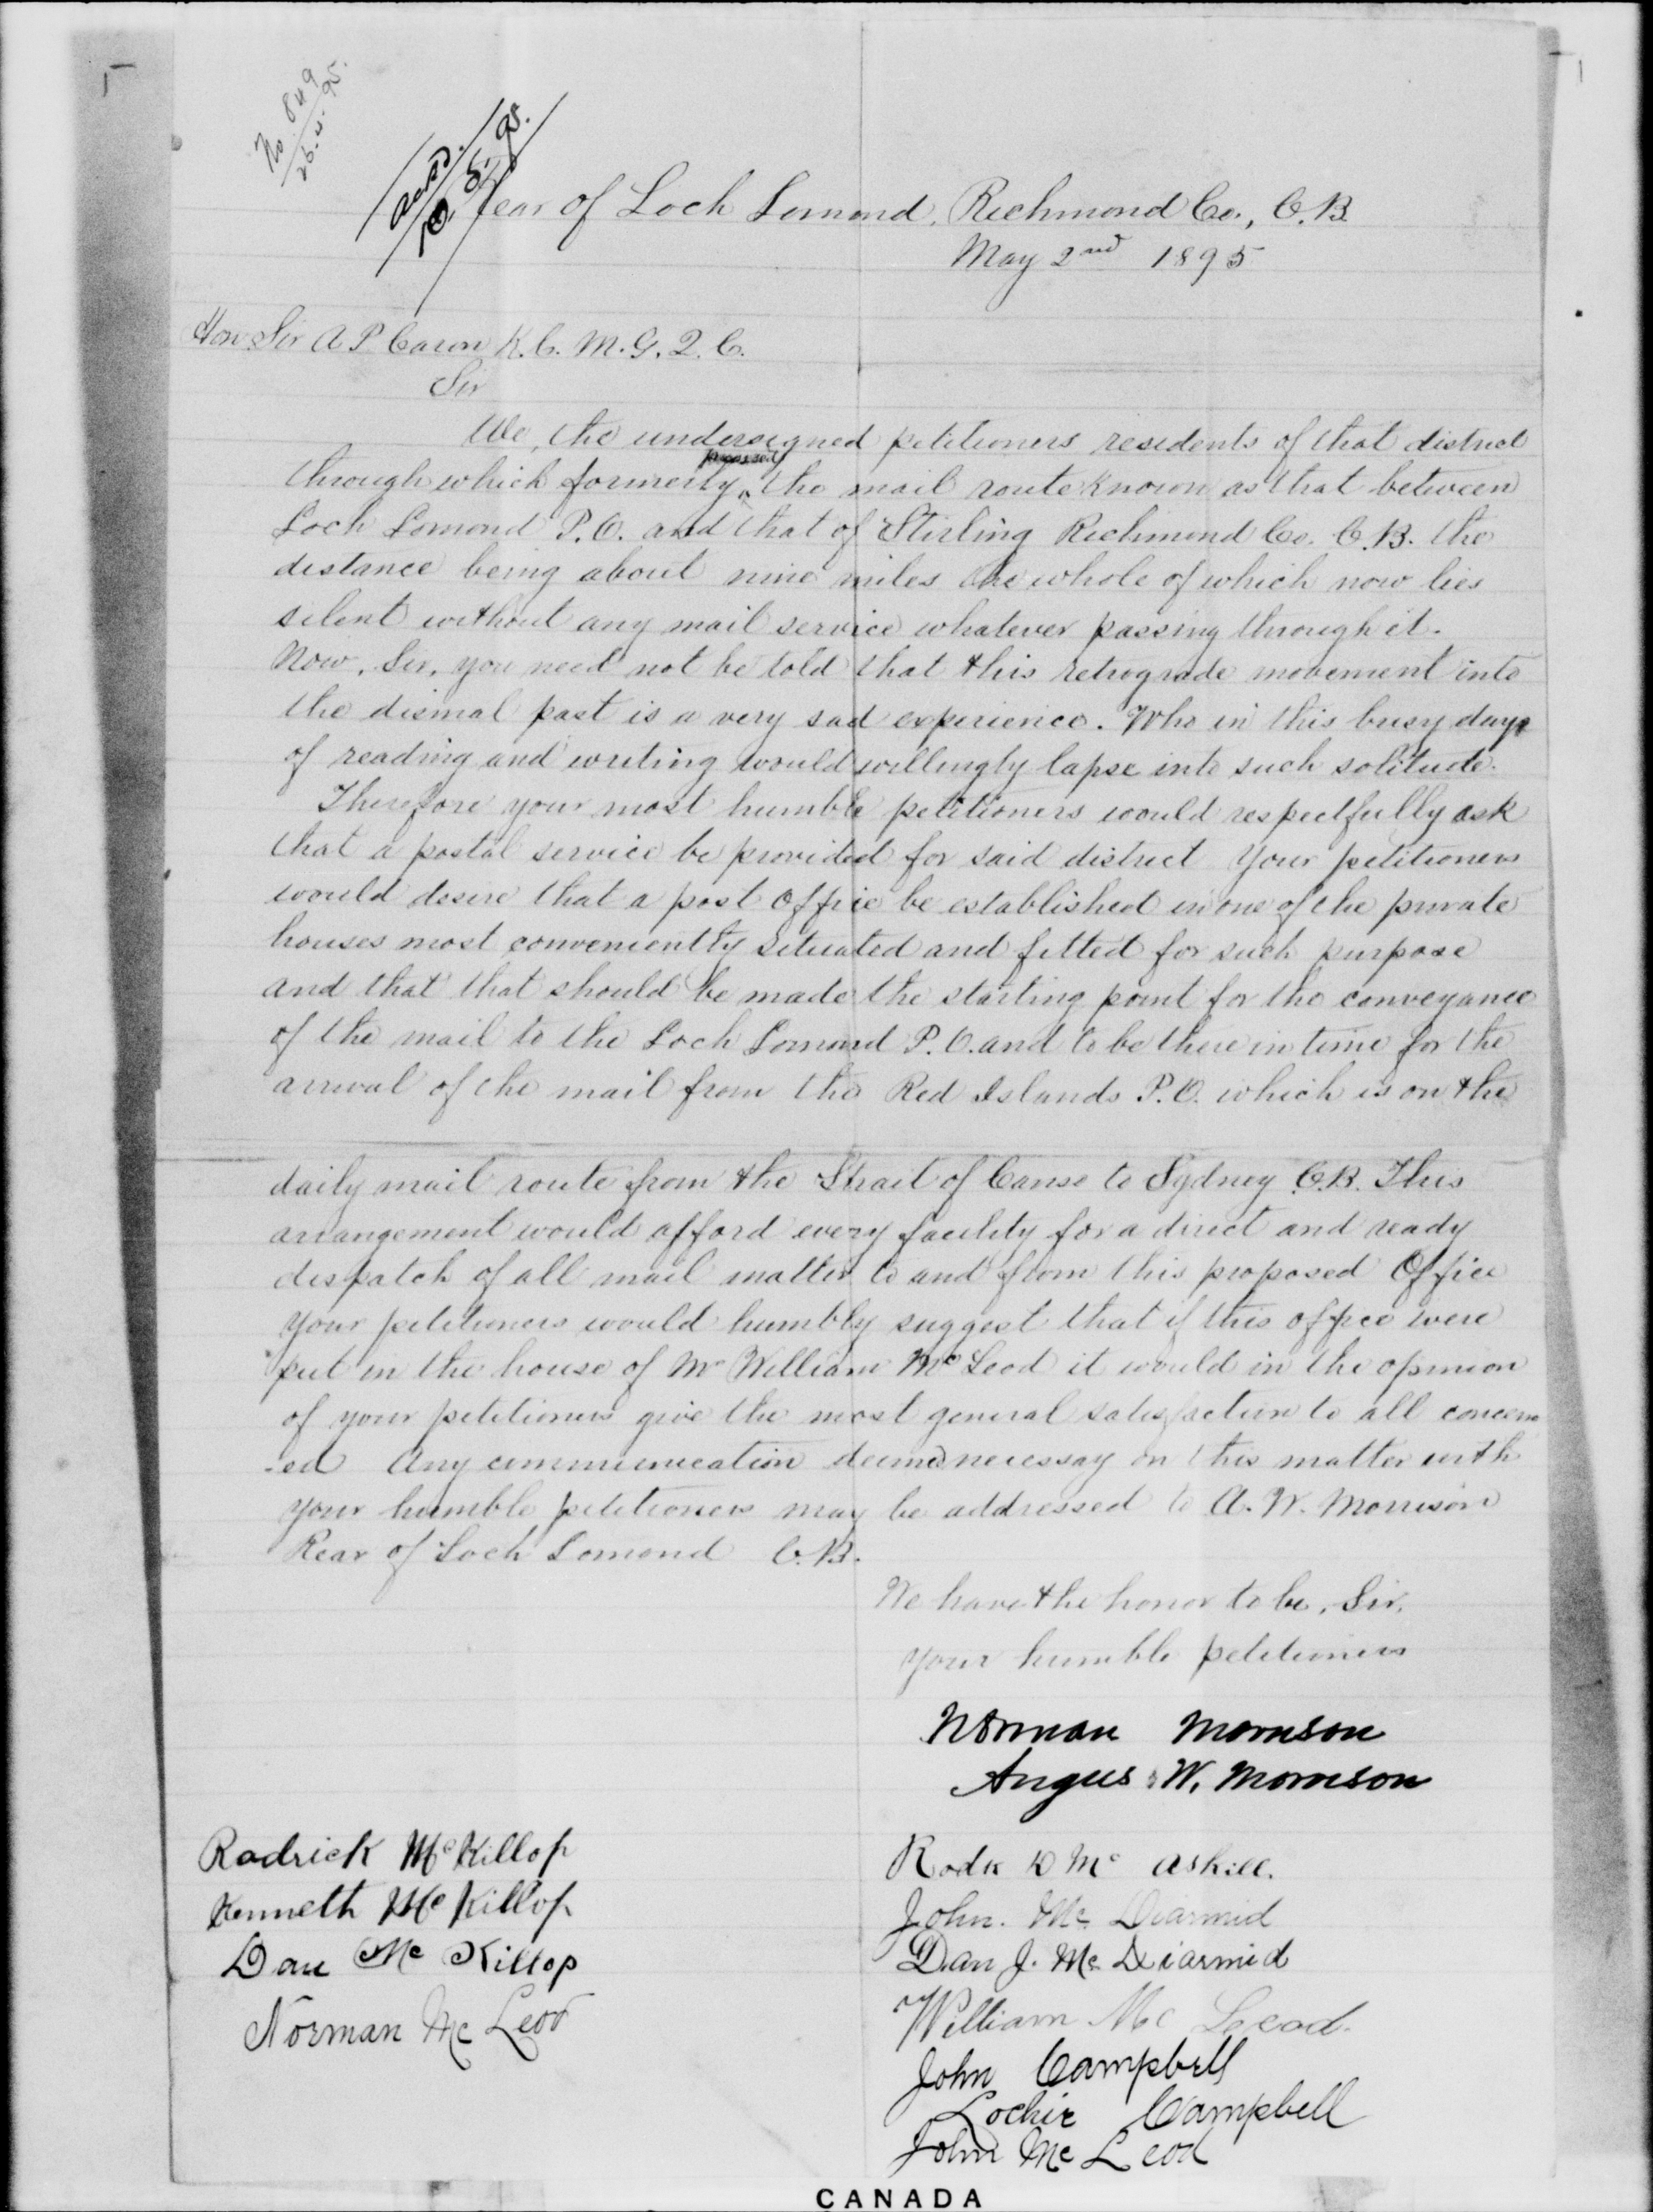 No. 849
26.5.95.
10.5.95.
Rear of Loch Lomond, Richmond Co., C.B.
May 2nd 1895
Hon Sir A P Caron K.C.M.G.Q.C.
Sir
We, the undersigned petitioners residents of that district
through which formerly passed the mail route known as that between
Loch Lomond P.O. and that of Stirling Richmond Co. C.B. the
distance being about nine miles the whole of which now lies
silent without any mail service whatever passing through it.
Now, Sir, you need not be told that this retrograde movement into
the dismal past is a very sad experience. Who in this busy day
of reading and writing would willingly lapse into such solitude.
Therefore your most humble petitioners would respectfully ask
that a postal service be provided for said district Your petitioners
would desire that a post Office be established in one of the private
houses most conveniently situated and fitted for such purpose
and that that should be made the starting point for the conveyance
of the mail to the Loch Lomond P.O. and to be there in time for the
arrival of the mail from the Red Islands P.O. which is on the
daily mail route from the Strait of Canso to Sydney C.B. This
arrangement would afford every facility for a direct and ready
despatch of all mail matter to and from this proposed Office
Your petitioners would humbly suggest that if this office were
put in the house of Mr William McLeod it would in the opinion
of your petitioners give the most general satisfaction to all concern
-ed Any communication deemed necessay on this matter with
your humble petitioners may be addressed to A. W. Morrison
Rear of Loch Lomond C.B.
We have the honor to be, Sir,
your humble petitioners
Norman Morrison
Angus W. Morrison
Rodrick McKillop
Kenneth McKillop
Dan McKillop
Norman McLeod
Rodk D Mc Askill.
John. Mc Diarmid
Dan J. Mc Diarmid
William Mc Leod.
John Campbell
Lochie Campbell
John McLeod
CANADA